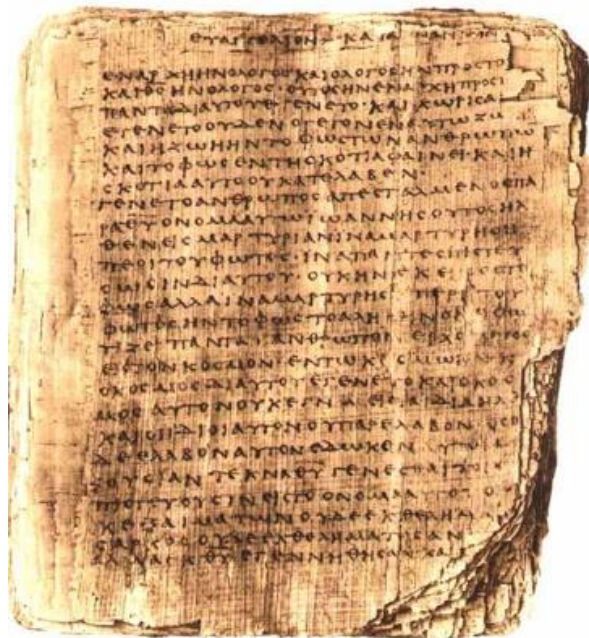 ΕΥΑΓΓΕΛΙΟΝ ΚΑΤΑ
ΕΝΑΡΧΗΗΝΟΛΟΓΟϹΚΑΙΟΛΟΓΟϹΗΝΠΡΟϹΤΟ
ΚΑΙΘϹΗΝΟΛΟΓΟϹ·ΟΥΤΟϹΗΝΕΝΑΡΧΗΠΡΟϹΤ
ΠΑΝΤΑΔΙΑΥΤΟΥΕΓΕΝΕΤΟ·ΚΑΙΧΩΡΙϹΑ
ΕΓΕΝΕΤΟΟΥΔΕΝΟΓΕΓΟΝΕΝΕΝΑΥΤΩΖΩ
ΚΑΙΗΖΩΗΗΝΤΟΦΩϹΤΩΝΑΝΘΡΩΠΩ
ΚΑΙΤΟΦΩϹΕΝΤΗϹΚΟΤΙΑΦΑΙΝΕΙ·ΚΑΙΗ
ϹΚΟΤΙΑΑΥΤΟΟΥΚΑΤΕΛΑΒΕΝ·
ΕΓΕΝΕΤΟΑΝΘΡΩΠΟϹΑΠΕϹΤΑΛΜΕΝΟϹΠΑ
ΡΑΘΥΟΝΟΜΑΑΥΤΩΙΩΑΝΝΗϹΟΥΤΟϹΗΛ
ΘΕΝΕΙϹΜΑΡΤΥΡΙΑΝΙΝΑΜΑΡΤΥΡΗϹΗ
ΠΕΡΙΤΟΥΦΩΤΟϹ·ΙΝΑΠΑΝΤΕϹΠΙϹΤΕΥ
ϹΩϹΙΝΔΙΑΥΤΟΥ·ΟΥΚΗΝΕΚΕΙΝΟϹΤΟ
ΦΩϹΑΛΛΑΙΝΑΜΑΡΤΥΡΗϹΗΠΕΡΙΤΟΥ
ΦΩΤΟϹΗΝΤΟΦΩϹΤΟΑΛΗΘΙΝΟΝΟΦΩ
ΤΙΖΕΙΠΑΝΤΑΑΝΘΡΩΠΟΝΕΡΧΟΜΕΝΟ
ΕΙϹΤΟΝΚΟϹΜΟΝ·ΕΝΤΩΚΟϹΜΩΗΝΚ
ΟΚΟϹΜΟϹΔΙΑΥΤΟΥΕΓΕΝΕΤΟΚΑΙΟΚΟϹ
ΜΟϹΑΥΤΟΝΟΥΚΕΓΝΩΕΙϹΤΑΙΔΙΑΗΛ
ΚΑΙΟΙΙΔΙΟΙΑΥΤΟΝΟΥΠΑΡΕΛΑΒΟΝΟϹΟ
ΔΕΕΛΑΒΟΝΑΥΤΟΝΕΔΩΚΕΝΑΥΤΟΙ
ΞΟΥϹΙΑΝΤΕΚΝΑΘΥΓΕΝΕϹΘΑΙΤΟΙ
ΠΙϹΤΕΥΟΥϹΙΝΕΙϹΤΟΟΝΟΜΑΑΥΤΟΥΟ
ΚΕΞΑΙΜΑΤΩΝΟΥΔΕΕΚΘΕΛΗΜ
ϹΑΡΚΟϹΟΥΔΕΕΚΘΕΛΗΜΑΤΟϹΑΝ
ΑΛΛΑΕΚΘΥΕΓΕΝΝΗΘΗϹΑΝΚΑΙ